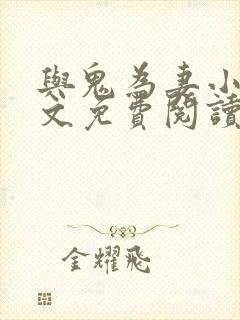 與鬼為妻小
文免費閱讀
金耀飛